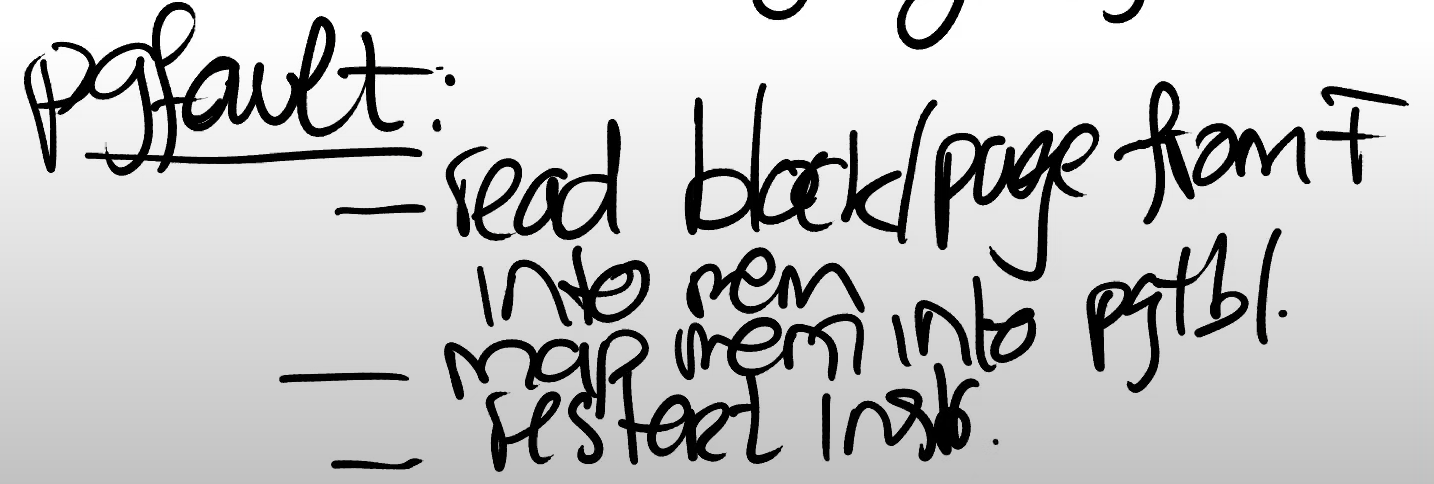 pgfault:
– read block/page from F
into mem
– map mem into pgtbl.
– restart instr.